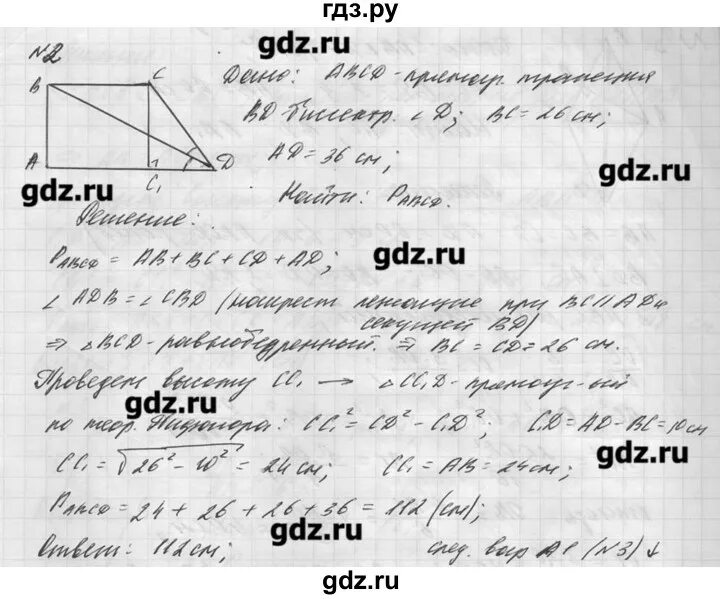 гдз.ру
№2
gdz.ru
B C
A C₁ D
Дано: ABCD - прямоуг. трапеция
BD - биссектр. ∠D; BC = 26 см;
AD = 36 см;
gdz.ru
gdz.ru
Найти: P_ABCD.
Решение:
gdz.ru
P_ABCD = AB + BC + CD + AD;
∠ADB = ∠CBD (накрест лежащие при BC||AD и
секущей BD)
⇒ △BCD - равнобедренный. ⇒ BC = CD = 26 см.
Проведем высоту CC₁ → △CC₁D - прямоуг-ый
gdz.ru
по теор. Пифагора: CC₁² = CD² - C₁D²; C₁D = AD - BC = 10 см
gdz.ru
CC₁ = √26² - 10² = 24 см; CC₁ = AB = 24 см;
P_ABCD = 24 + 26 + 26 + 36 = 112 (см);
gdz.ru
Ответ: 112 см; след. вар A1 (№3) ↓
gdz.ru